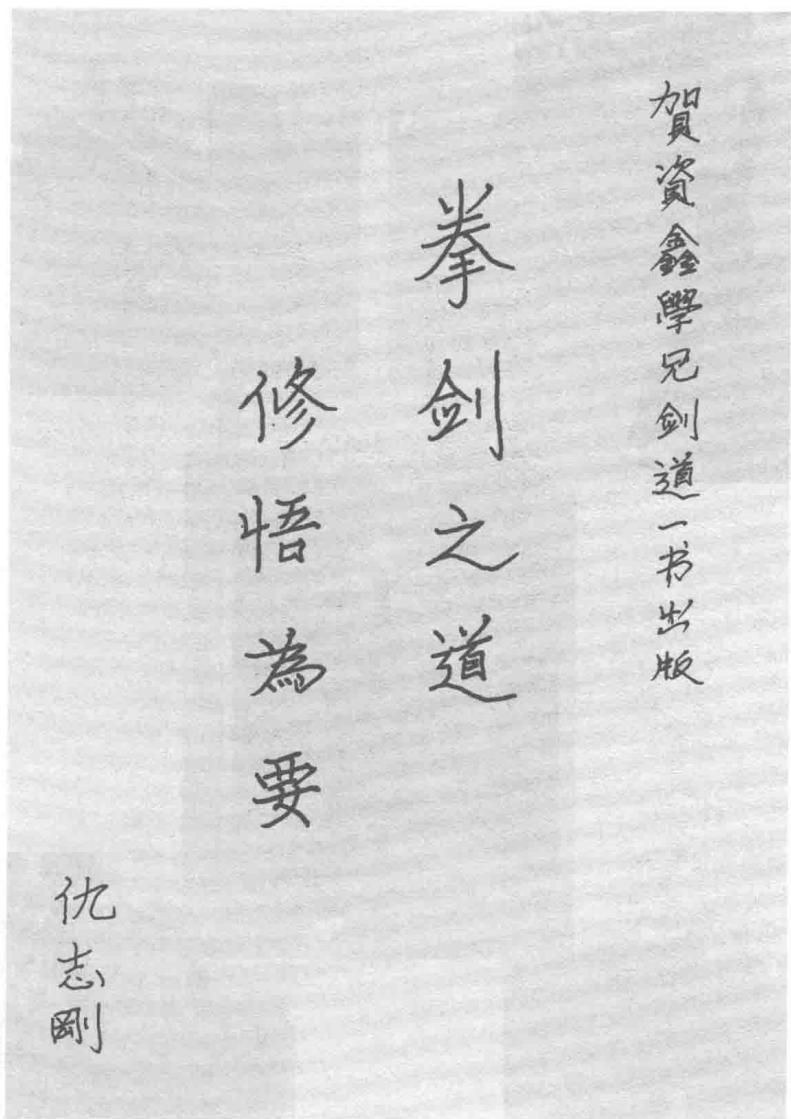 賀資鑫學兄剑道一书出版
拳剑之道
修悟為要
仇志剛